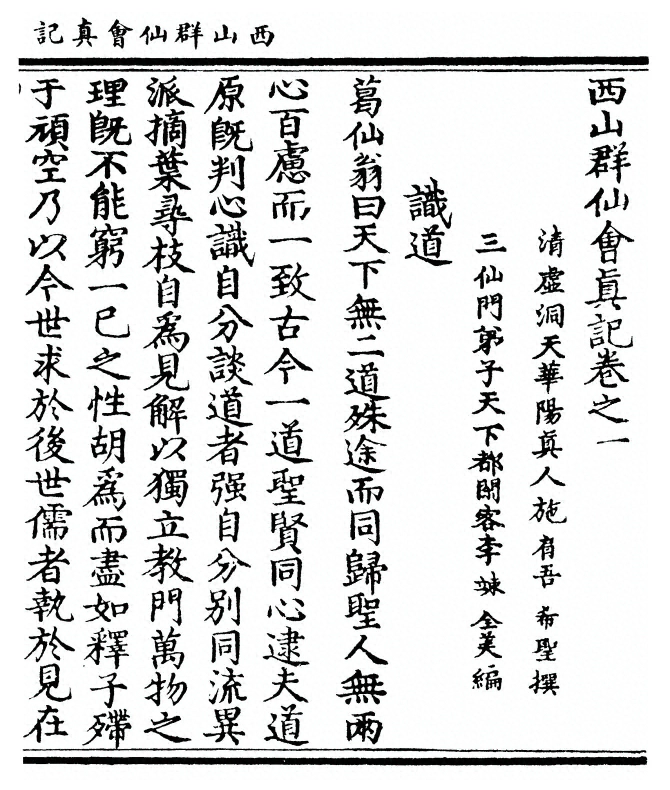 西山群仙會真記
西山群仙會眞記卷之一
清虛洞天華陽眞人施肩吾希聖撰
三仙門弟子天下都閑客李竦全美編
識道
葛仙翁曰天下無二道殊途而同歸聖人無兩
心百慮而一致古今一道聖賢同心逮夫道
原旣判心識自分談道者强自分別同流異
派摘葉尋枝自爲見解以獨立教門萬物之
理旣不能窮一已之性胡爲而盡如釋子殢
于頑空乃以今世求於後世儒者執於見在